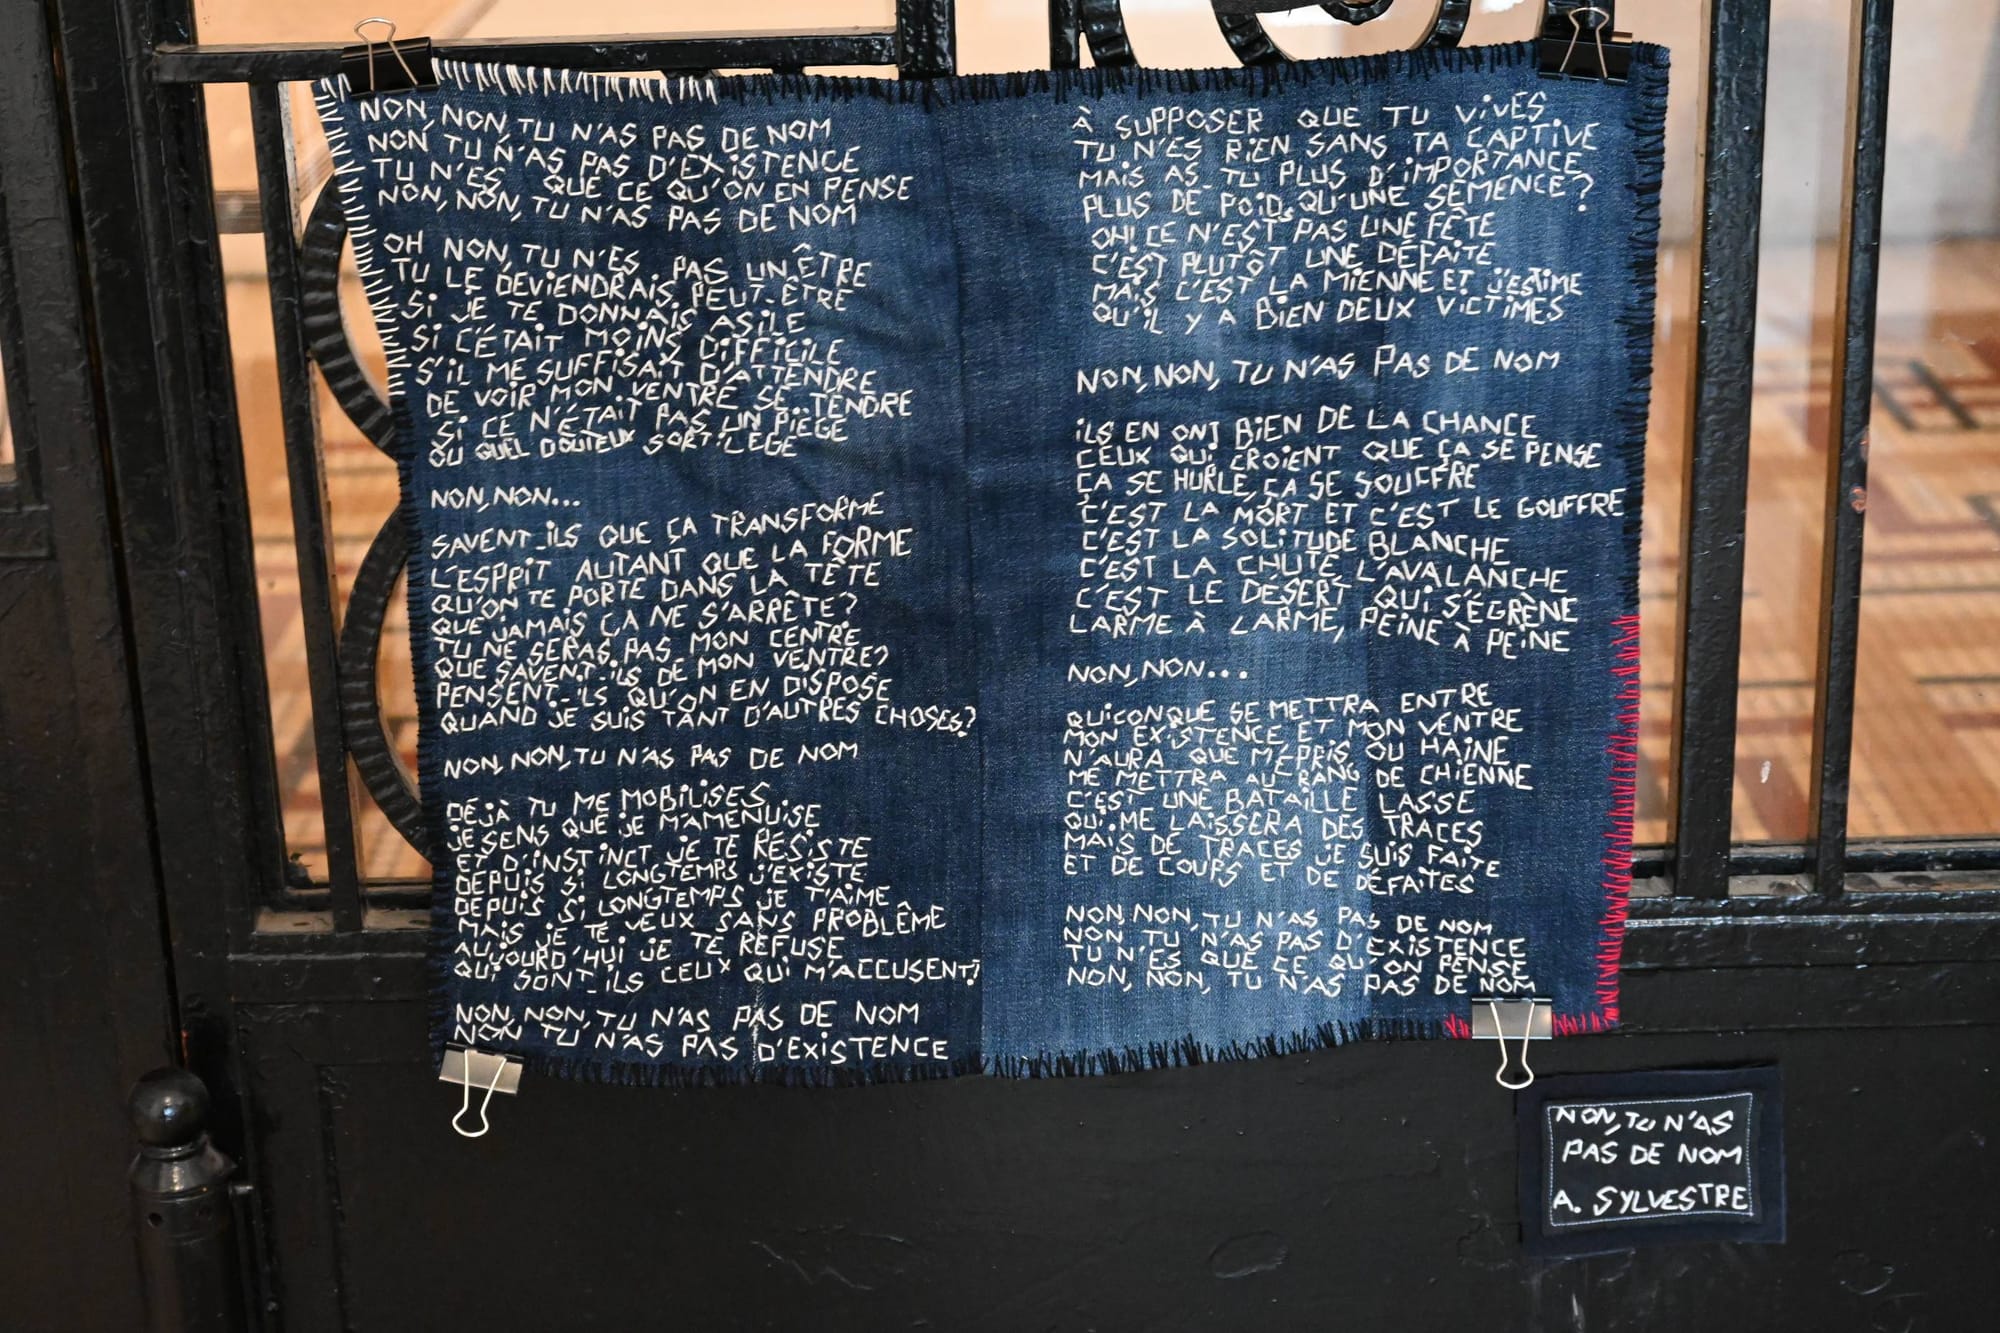 NON, NON, TU N'AS PAS DE NOM
NON TU N'AS PAS D'EXISTENCE
TU N'ES QUE CE QU'ON EN PENSE
NON, NON, TU N'AS PAS DE NOM
OH NON, TU N'ES PAS UN ÊTRE
TU LE DEVIENDRAIS PEUT-ÊTRE
SI JE TE DONNAIS ASILE
SI C'ÉTAIT MOINS DIFFICILE
S'IL ME SUFFISAIT D'ATTENDRE
DE VOIR MON VENTRE SE TENDRE
SI CE N'ÉTAIT PAS UN PIÈGE
OU QUEL DOUTEUX SORTILÈGE
NON, NON...
SAVENT-ILS QUE ÇA TRANSFORME
L'ESPRIT AUTANT QUE LA FORME
QU'ON TE PORTE DANS LA TÊTE
QUE JAMAIS ÇA NE S'ARRÊTE?
TU NE SERAS PAS MON CENTRE
QUE SAVENT-ILS DE MON VENTRE?
PENSENT-ILS QU'ON EN DISPOSE
QUAND JE SUIS TANT D'AUTRES CHOSES?
NON, NON, TU N'AS PAS DE NOM
DÉJÀ TU ME MOBILISES
JE SENS QUE JE M'AMENUISE
ET D'INSTINCT JE TE RÉSISTE
DEPUIS SI LONGTEMPS J'EXISTE
DEPUIS SI LONGTEMPS JE T'AIME
MAIS JE TE VEUX SANS PROBLÊME
AUJOURD'HUI JE TE REFUSE
QUI SONT-ILS CEUX QUI M'ACCUSENT?
NON, NON, TU N'AS PAS DE NOM
NON TU N'AS PAS D'EXISTENCE
À SUPPOSER QUE TU VIVES
TU N'ES RIEN SANS TA CAPTIVE
MAIS AS-TU PLUS D'IMPORTANCE
PLUS DE POIDS QU'UNE SEMENCE?
OH! CE N'EST PAS UNE FÊTE
C'EST PLUTÔT UNE DÉFAITE
MAIS C'EST LA MIENNE ET J'ESTIME
QU'IL Y A BIEN DEUX VICTIMES
NON, NON, TU N'AS PAS DE NOM
ILS EN ONT BIEN DE LA CHANCE
CEUX QUI CROIENT QUE ÇA SE PENSE
ÇA SE HURLE, ÇA SE SOUFFRE
C'EST LA MORT ET C'EST LE GOUFFRE
C'EST LA SOLITUDE BLANCHE
C'EST LA CHUTE L'AVALANCHE
C'EST LE DÉSERT QUI S'ÉGRÈNE
LARME À LARME, PEINE À PEINE
NON, NON...
QUICONQUE SE METTRA ENTRE
MON EXISTENCE ET MON VENTRE
N'AURA QUE MÉPRIS OU HAINE
ME METTRA AU RANG DE CHIENNE
C'EST UNE BATAILLE LASSE
QUI ME LAISSERA DES TRACES
MAIS DE TRACES JE SUIS FAITE
ET DE COUPS ET DE DÉFAITES
NON, NON, TU N'AS PAS DE NOM
NON TU N'AS PAS D'EXISTENCE
TU N'ES QUE CE QU'ON PENSE
NON, NON, TU N'AS PAS DE NOM
NON, TU N'AS
PAS DE NOM
A. SYLVESTRE